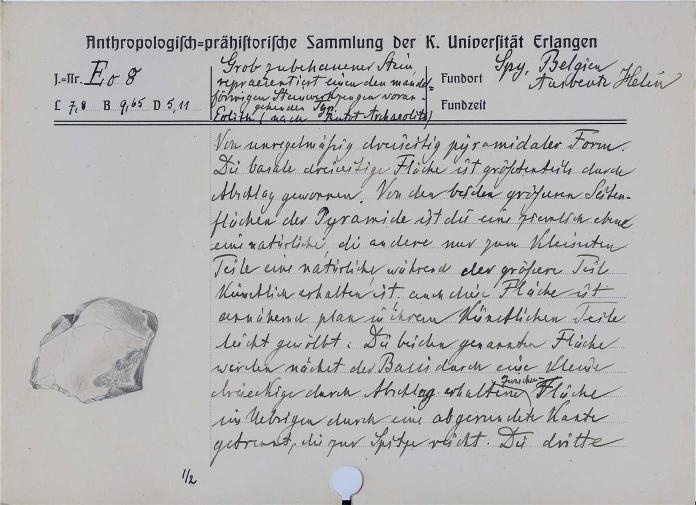 Anthropologisch=prähistorische Sammlung der K. Universität Erlangen
J.=Nr. E o 8
L 7,8 B 9,65 D 5,11
Grob zubehauener Stein
repraesentiert einen den mandel=
förmigen Steinwerkzeugen voran-
gehenden Typ.
Eolith (nach Rutot Archaeolith)
Fundort Spy, Belgien
Ausbeute Helin
Fundzeit
Von unregelmäßig dreiseitig pyramidaler Form.
Die basale dreiseitige Fläche ist größtenteils durch
Abschlag gewonnen. Von den beiden größeren Seiten-
flächen der Pyramide ist die eine ziemlich eben
eine natürliche, die andere nur zum kleinsten
Teile eine natürliche, während der größere Teil
künstlich erhalten ist. auch diese Fläche ist
annähernd plan in ihrem künstlichen Teile
leicht gewölbt. Die beiden genannten Flächen
werden nächst der Basis durch eine kleine
dreieckige durch Abschlag erhaltene Zwischen-Fläche
im Uebrigen durch eine abgerundete Kante
getrennt, die zur Spitze reicht. Die dritte
1/2